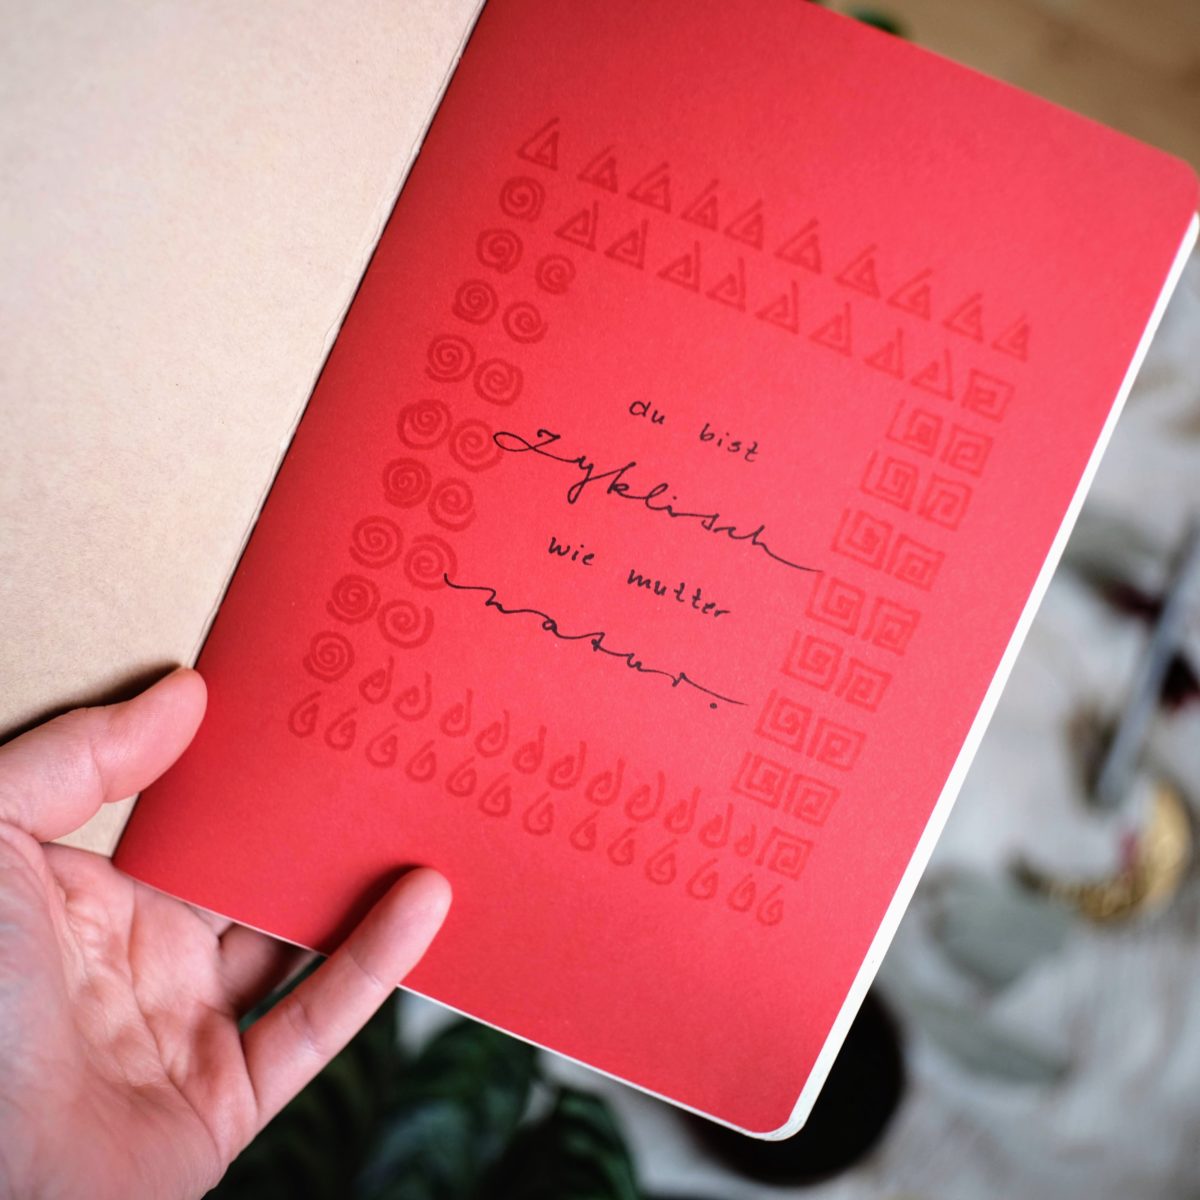 du bist
Zyklisch
wie mutter
natur.